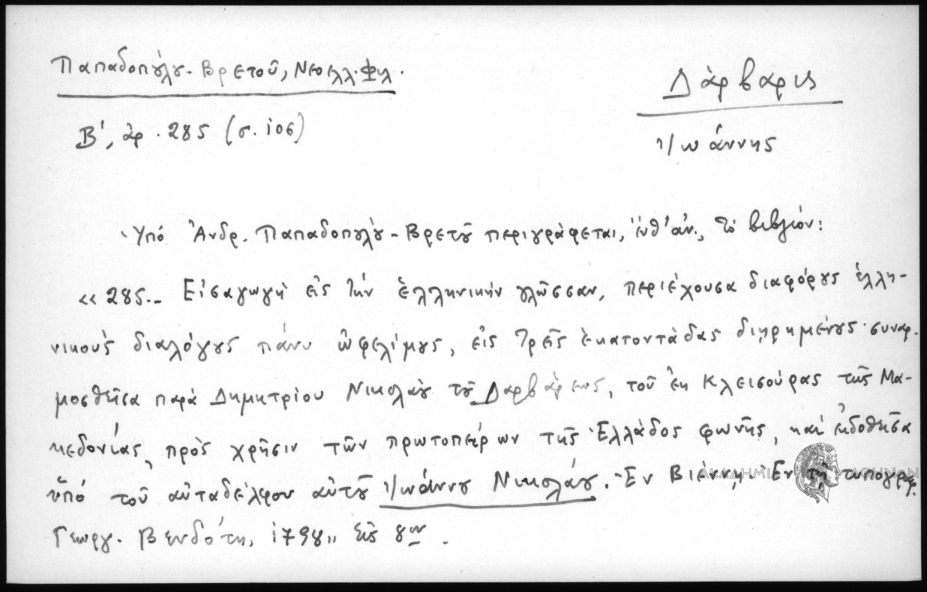 Παπαδοπούλου-Βρετοῦ, Νεοελλ. Φιλ.
Β', ἀρ. 285 (σ. 106)
Δάρβαρις
Ἰωάννης
Ὑπό Ἀνδρ. Παπαδοπούλου-Βρετοῦ περιγράφεται, ἐνθ' ἀν., τό βιβλίον:
«285.- Εἰσαγωγή εἰς τήν ἑλληνικήν γλῶσσαν, περιέχουσα διαφόρους ἑλλη-
νικούς διαλόγους πάνυ ὠφελίμους, εἰς τρεῖς ἑκατοντάδας διῃρημένους· συναρ-
μοσθεῖσα παρά Δημητρίου Νικολάου τοῦ Δαρβάρεως, τοῦ ἐκ Κλεισούρας τῆς Μα-
κεδονίας, πρός χρῆσιν τῶν πρωτοπείρων τῆς Ἑλλάδος φωνῆς, καί ἐκδοθεῖσα
ὑπό τοῦ αὐταδέλφου αὐτοῦ Ἰωάννου Νικολάου.- Ἐν Βιέννῃ. Ἐν τῇ τυπογραφ.
Γεωργ. Βενδότη, 1798,, εἰς 8ον.
ΑΚΑΔΗΜΙΑ ΑΘΗΝΩΝ